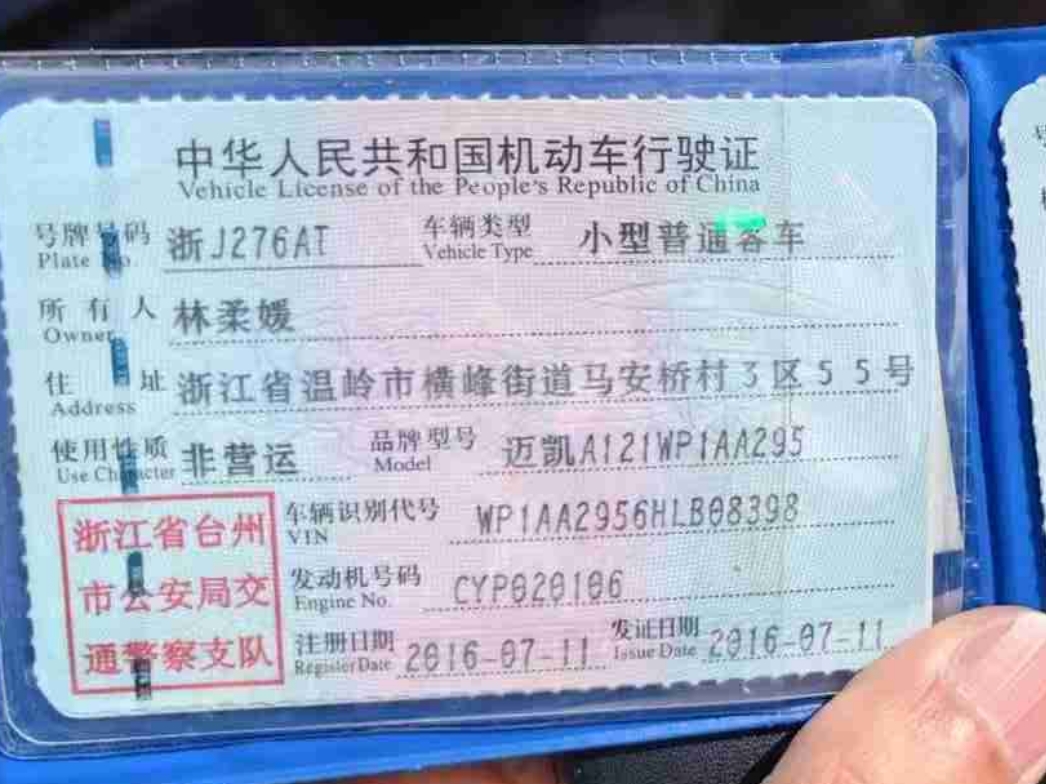 中华人民共和国机动车行驶证
Vehicle License of the People's Republic of China
号牌号码 浙J276AT 车辆类型 小型普通客车
Plate No. Vehicle Type
所有人 林柔媛
Owner
住址 浙江省温岭市横峰街道马安桥村3区55号
Address
使用性质 非营运 品牌型号 迈凯A121WP1AA295
Use Character Model
浙江省台州
市公安局交
通警察支队
车辆识别代号 WP1AA2956HLB08398
VIN
发动机号码 CYP020106
Engine No.
注册日期 2016-07-11 发证日期 2016-07-11
Register Date Issue Date